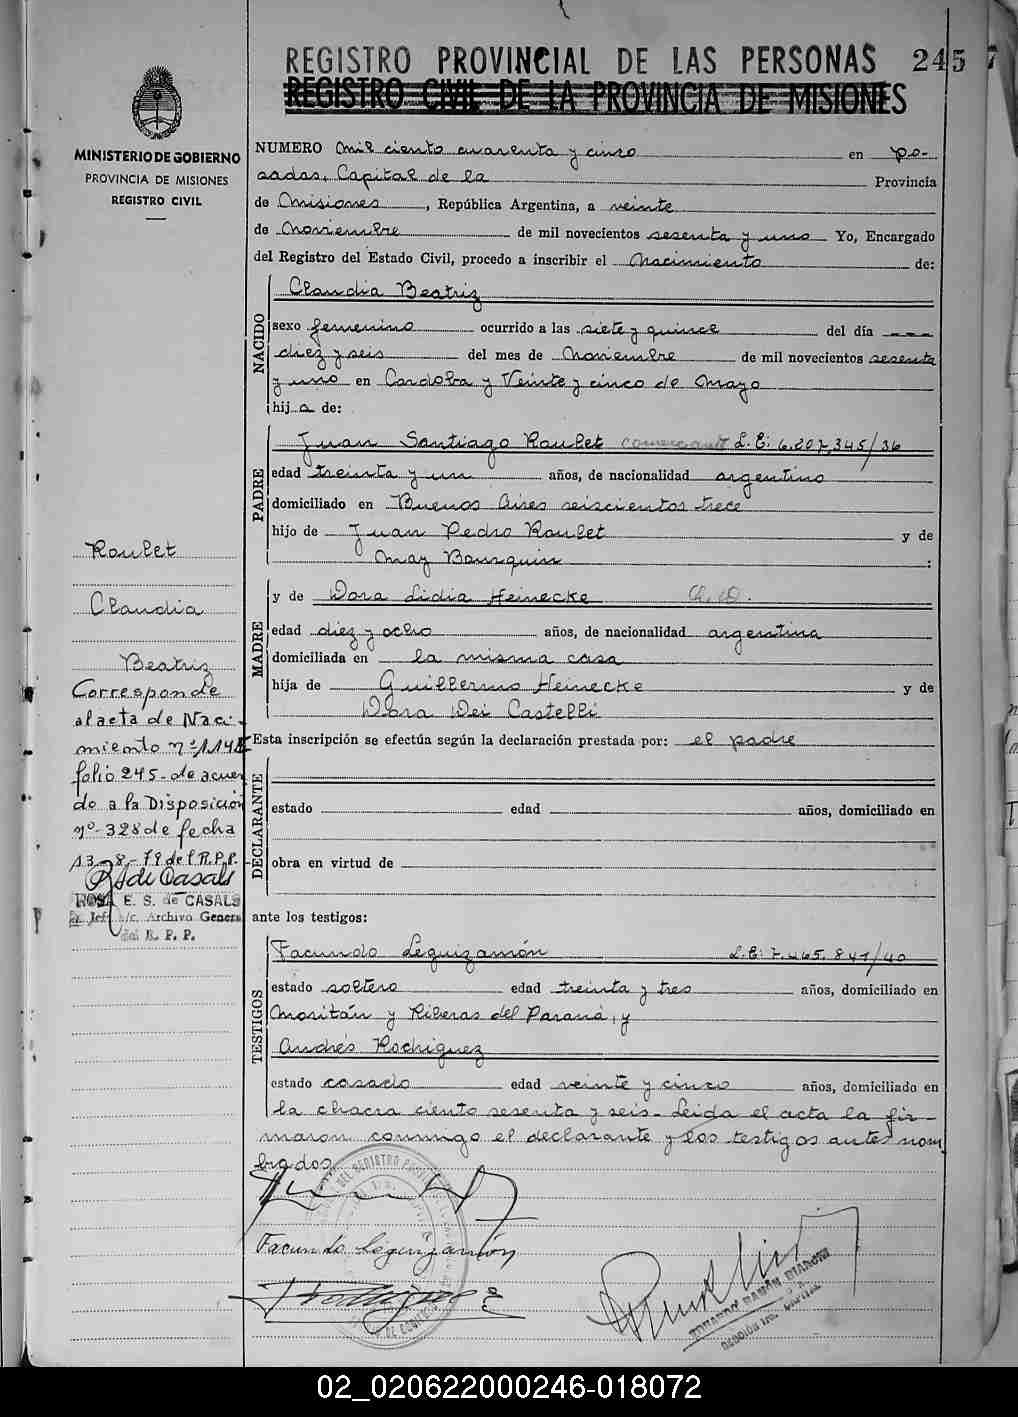 REGISTRO PROVINCIAL DE LAS PERSONAS 245
REGISTRO CIVIL DE LA PROVINCIA DE MISIONES
MINISTERIO DE GOBIERNO
PROVINCIA DE MISIONES
REGISTRO CIVIL
NUMERO Mil ciento cuarenta y cinco en Po-
sadas, Capital de la Provincia
de Misiones, República Argentina, a veinte
de Noviembre de mil novecientos sesenta y uno Yo, Encargado
del Registro del Estado Civil, procedo a inscribir el Nacimiento de:
NACIDO
Claudia Beatriz
sexo femenino ocurrido a las siete y quince del día ---
diez y seis del mes de Noviembre de mil novecientos sesenta
y uno en Cordoba y Veinte y cinco de Mayo
hij a de:
PADRE
Juan Santiago Roulet comerciante L.E: 6.207.345/36
edad treinta y un años, de nacionalidad argentino
domiciliado en Buenos Aires seiscientos trece
hijo de Juan Pedro Roulet y de
May Bourquin :
MADRE
y de Dora Lidia Heinecke Q.D.
edad diez y ocho años, de nacionalidad argentina
domiciliada en la misma casa
hija de Guillermo Heinecke y de
Dora Dei Castelli
Esta inscripción se efectúa según la declaración prestada por: el padre
DECLARANTE
estado edad años, domiciliado en
obra en virtud de
ante los testigos:
TESTIGOS
Facundo Leguizamón L.E: 7.465.841/40
estado soltero edad treinta y tres años, domiciliado en
Moritán y Riberas del Paraná, y
Andrés Rodriguez
estado casado edad veinte y cinco años, domiciliado en
la chacra ciento sesenta y seis. Leida el acta la fir-
maron conmigo el declarante y los testigos antes nom
brados.
Facundo Leguizamón
EDUARDO RAMÓN BIANCHI
Roulet
Claudia
Beatriz
Corresponde
al acta de Naci-
miento nº 1145
folio 245- de acuer
do a la Disposición
nº 328 de fecha
13-8-79 del R.P.P.
RS de Casals
ROSA E. S. de CASALS
Jef a/c. Archivo General
del R. P. P.
02_020622000246-018072